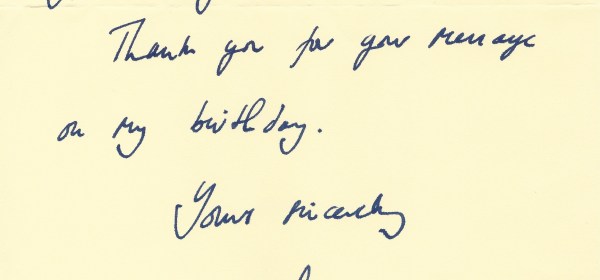 Thank you for your message
on my birthday.
Yours sincerely